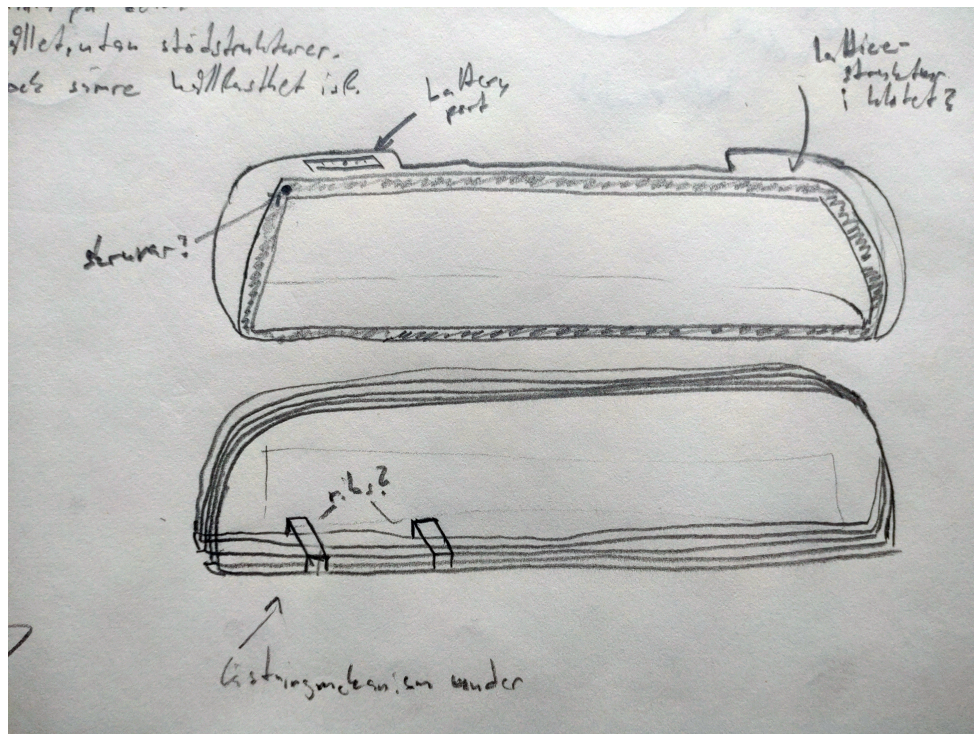 utan stödstrukturer.
och sämre hållfasthet isf.
battery
port
lattice-
struktur
i höljet?
skruvar?
ribs?
Låsningmekanism under